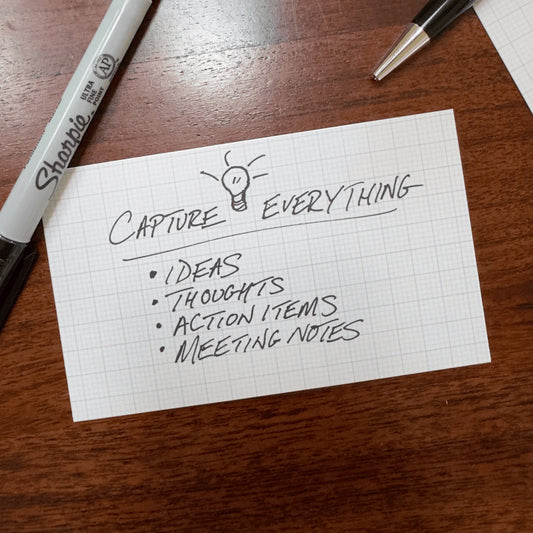 Sharpie.
ULTRA
FINE
POINT
AP
CAPTURE EVERYTHING
• IDEAS
• THOUGHTS
• ACTION ITEMS
• MEETING NOTES